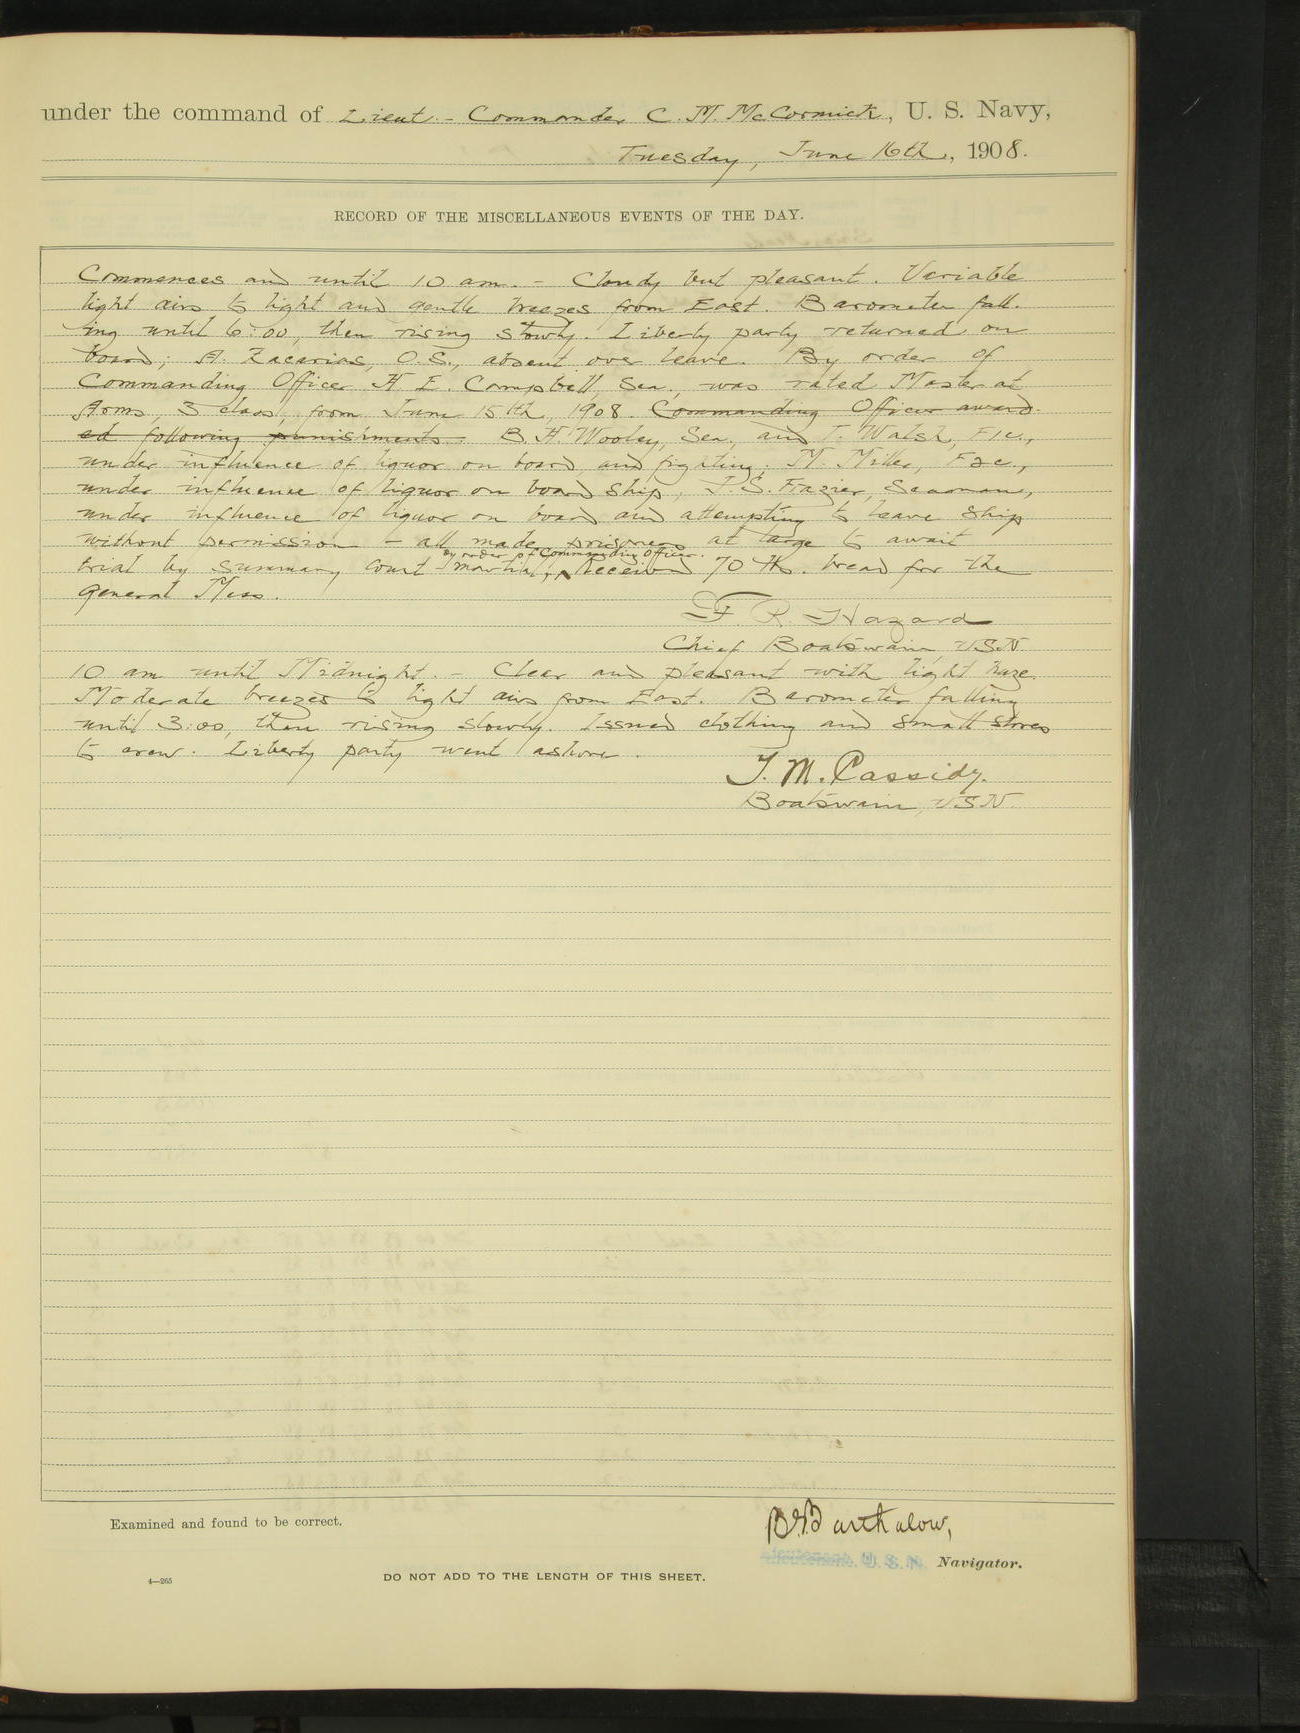 under the command of Lieut.- Commander C. M. McCormick, U. S. Navy,
Tuesday, June 16th, 1908.
RECORD OF THE MISCELLANEOUS EVENTS OF THE DAY.
Commences and until 10 am. - Cloudy but pleasant. Variable
light airs to light and gentle breezes from East. Barometer fall-
ing until 6:00, then rising slowly. Liberty party returned on
board; A. Zacarias, O.S., absent over leave. By order of
Commanding Officer H. E. Campbell, Sea., was rated Master at
Arms, 3 class, from June 15th, 1908. Commanding Officer award-
ed following punishments - B. H. Wooley, Sea., and T. Walsh, F1c.,
under influence of liquor on board and fighting; M. Miller, F2c.,
under influence of liquor on board ship, J. S. Frazier, Seaman,
under influence of liquor on board and attempting to leave ship
without permission - all made prisoners at large to await
by order of Commanding Officer.
trial by summary court-martial, Received 70 lbs. bread for the
general Mess.
F. R. Hazard
Chief Boatswain USN.
10 am until Midnight. - Clear and pleasant with light haze.
Moderate breezes to light airs from East. Barometer falling
until 3:00, then rising slowly. Issued clothing and small stores
to crew. Liberty party went ashore.
T. M. Cassidy.
Boatswain, USN.
Examined and found to be correct.
Barthalow,
Lieutenant, U. S. N. Navigator.
4—265
DO NOT ADD TO THE LENGTH OF THIS SHEET.